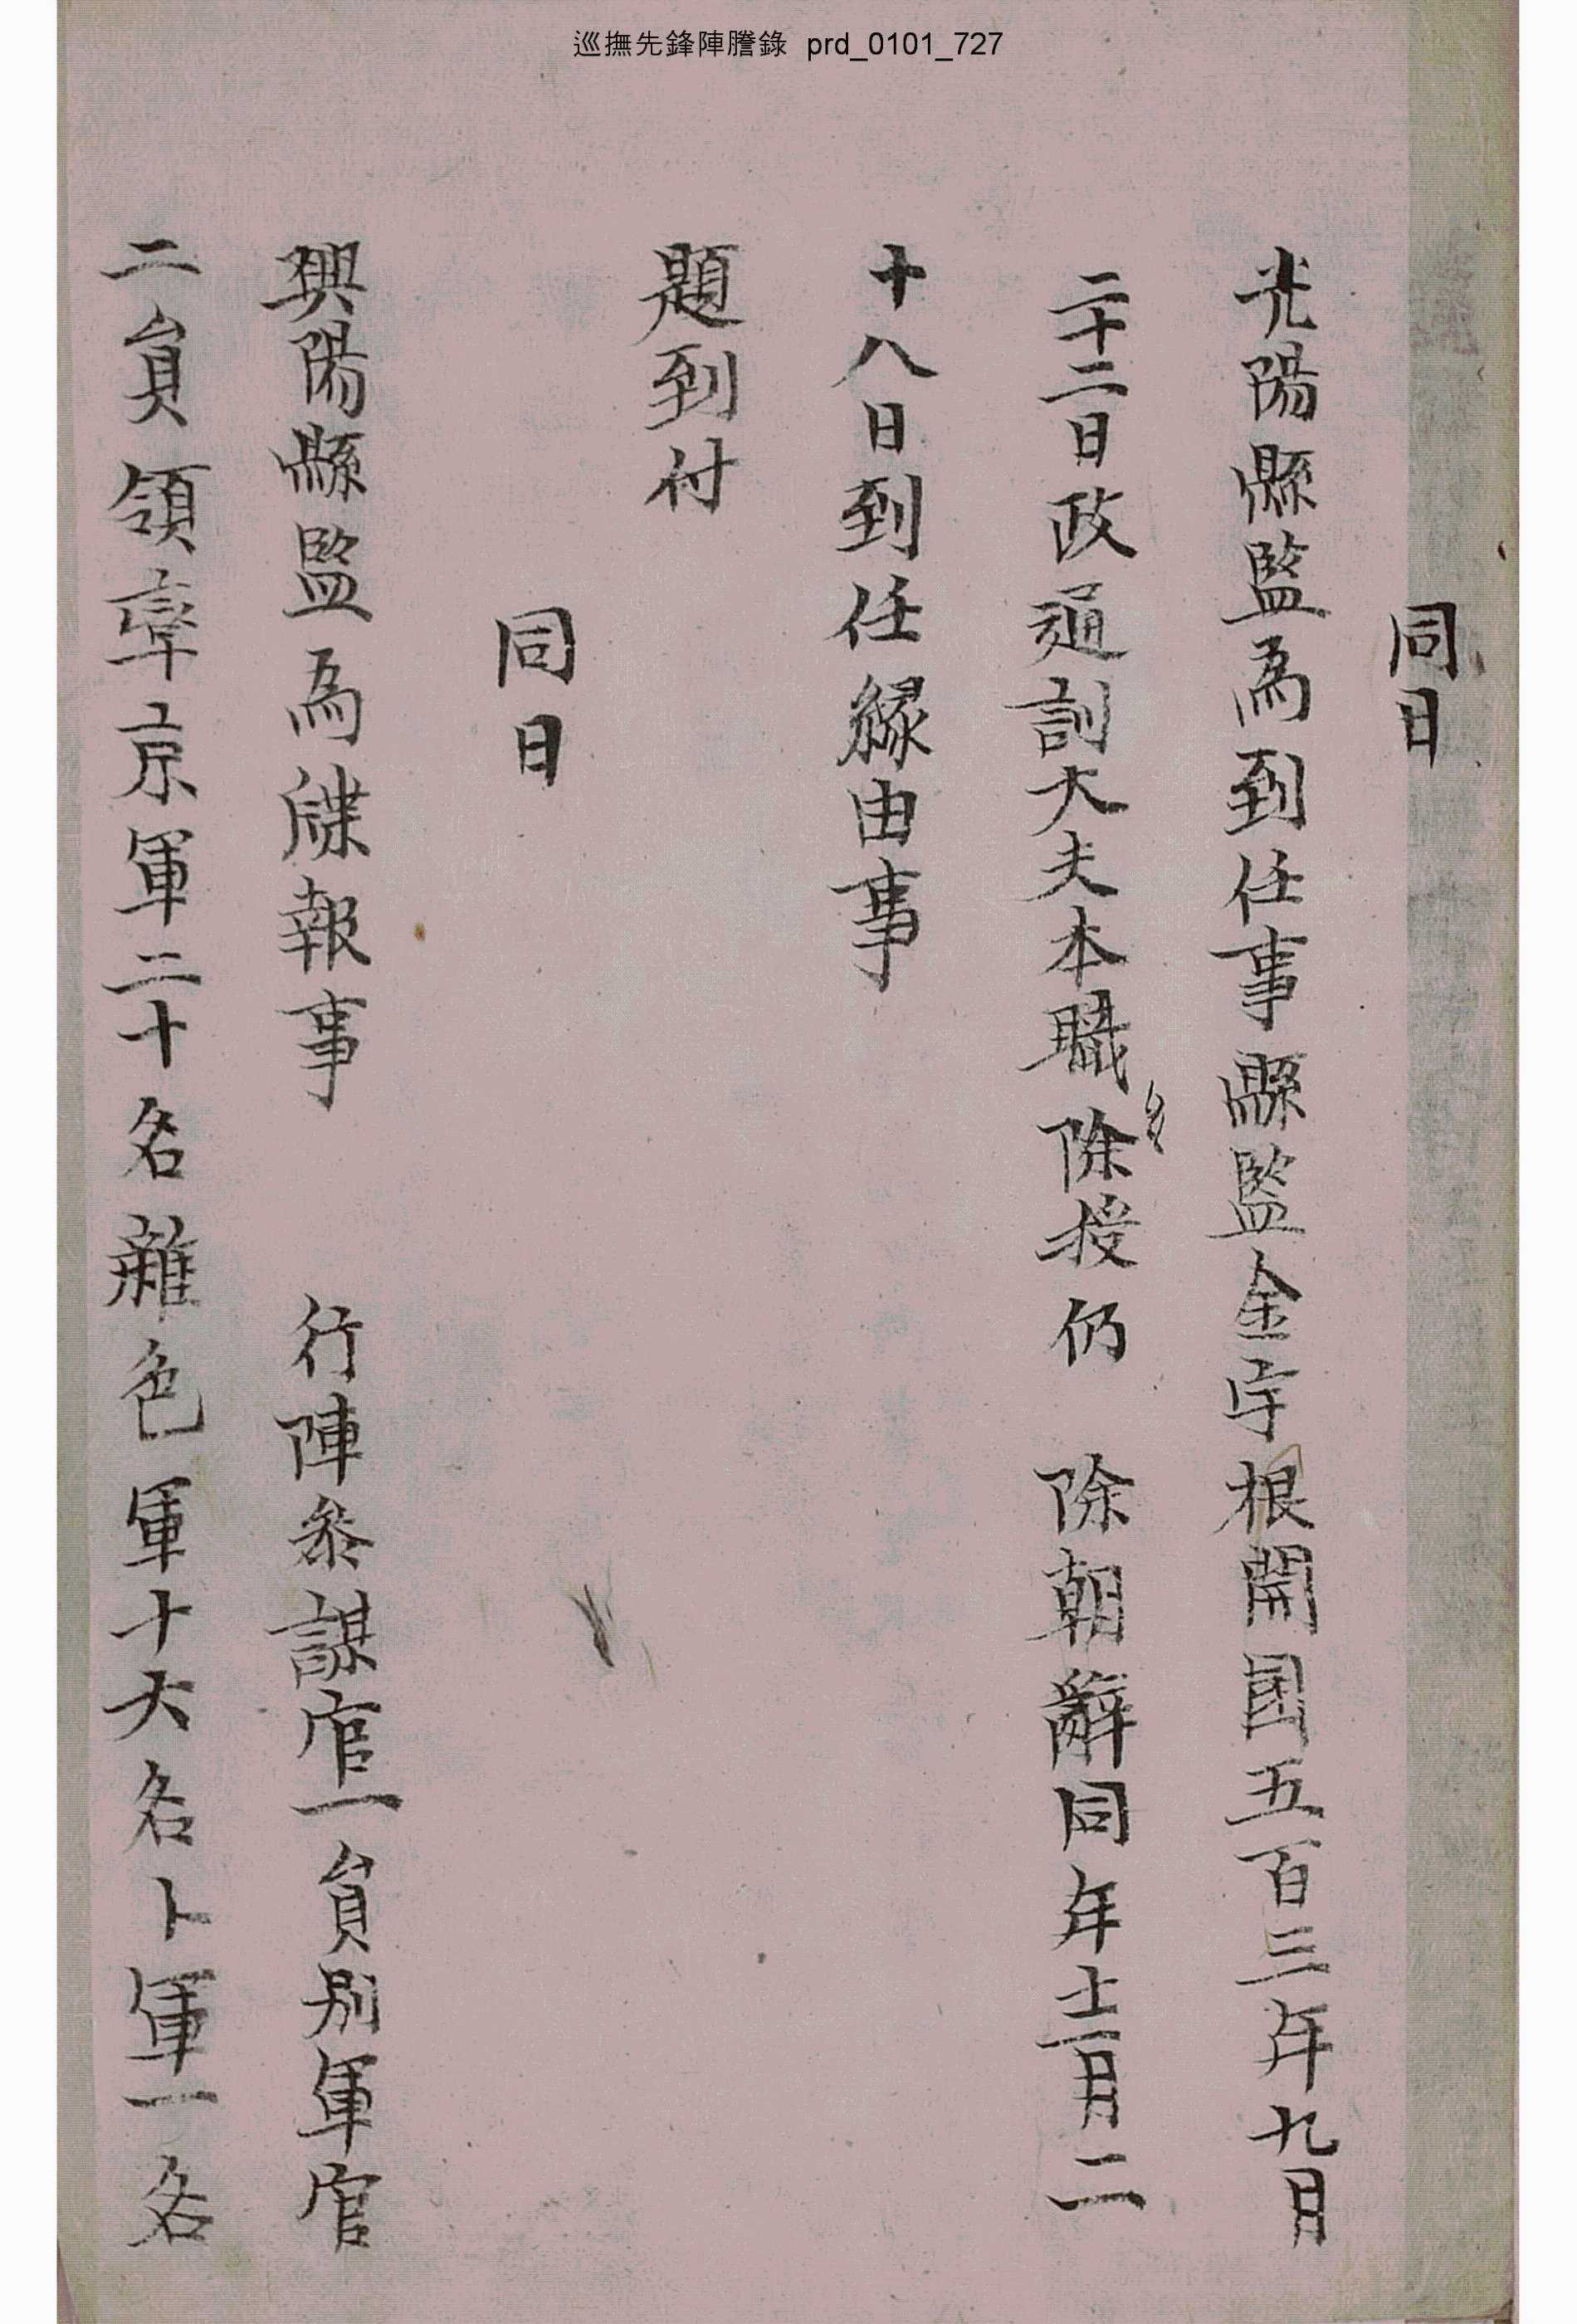 巡撫先鋒陣謄錄 prd_0101_727
同日
光陽縣監為到任事縣監金宇根開國五百三年九月
二十二日政通訓大夫本職除授仍 除朝辭同年十一月二
十八日到任緣由事
題到付
同日
興陽縣監為牒報事 行陣參謀官一員別軍官
二員領率京軍二十名雜色軍十六名卜軍一名